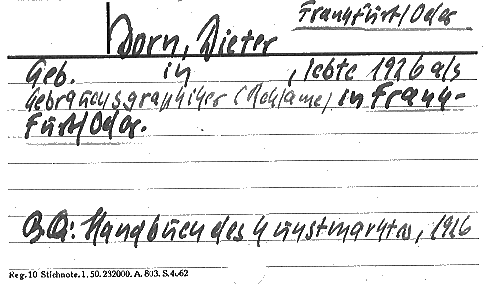 Frankfurt/Oder
Dorn, Dieter
Geb. in , lebte 1926 als
Gebrauchsgraphiker (Reklame) in Frank-
furt/Oder.
BQ: Handbuch des Kunstmarktes, 1926
Reg.10 Stichnote.1.50.232000. A. 803. S.4.62